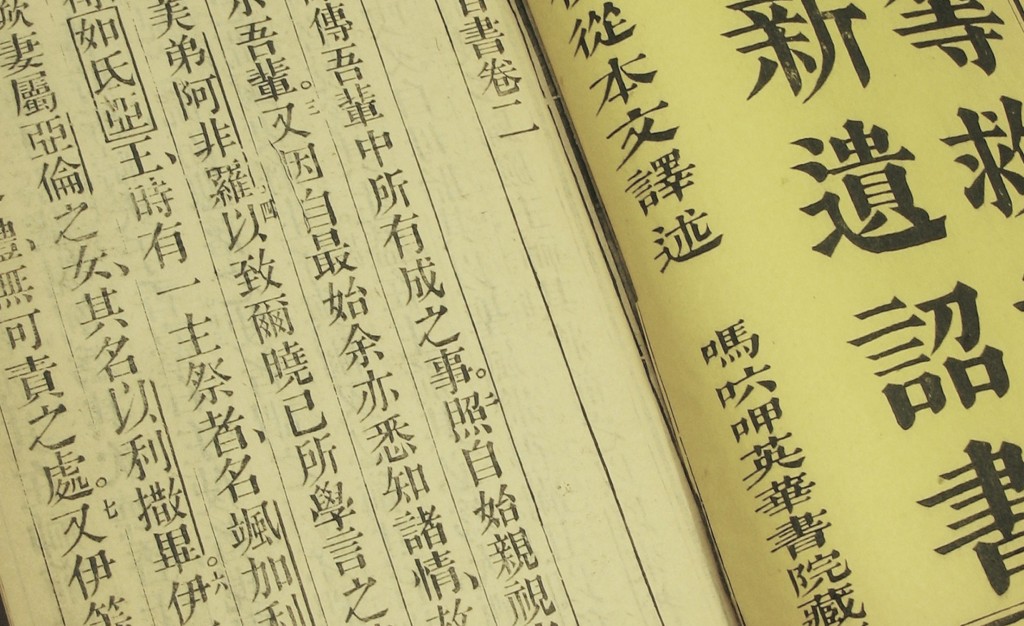 等救
新遺詔書
從本文譯述
嗎呷英華書院藏
書卷二
傳吾輩中所有成之事。二照自始親視
吾輩。三又因自最始余亦悉知諸情、故
美弟阿非羅、四以致爾曉已所學言之
如氏亞王、時有一主祭者、名颯加利
妻屬亞倫之女、其名以利撒畢。六伊
無可責之處。七又伊等